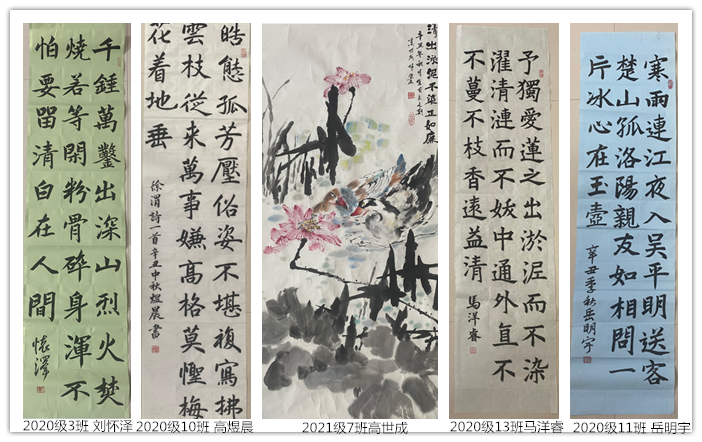 千錘萬鑿出深山烈火焚
燒若等閑粉骨碎身渾不
怕要畱清白在人間
懷澤
皓態孤芳壓俗姿不堪複寫拂
雲枝從來萬事嫌高格莫慳梅
花着地垂
徐渭詩一首辛丑中秋煜晨書
清出淤泥不
予獨愛蓮之出淤泥而不染
濯清漣而不妖中通外直不
不蔓不枝香遠益清
馬洋睿
寒雨連江夜入吴平明送客
楚山孤洛陽親友如相問一
片冰心在玉壺
辛丑季秋岳明宇
2020级3班 刘怀泽
2020级10班 高煜晨
2021级7班高世成
2020级13班马洋睿
2020级11班 岳明宇